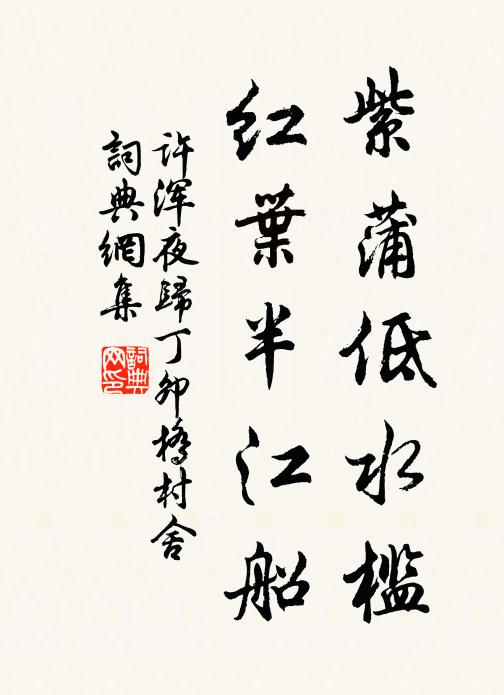 紫蒲低水檻
紅葉半江船
许浑夜歸丁卯橋村舍
詞典網集
詞典
网印